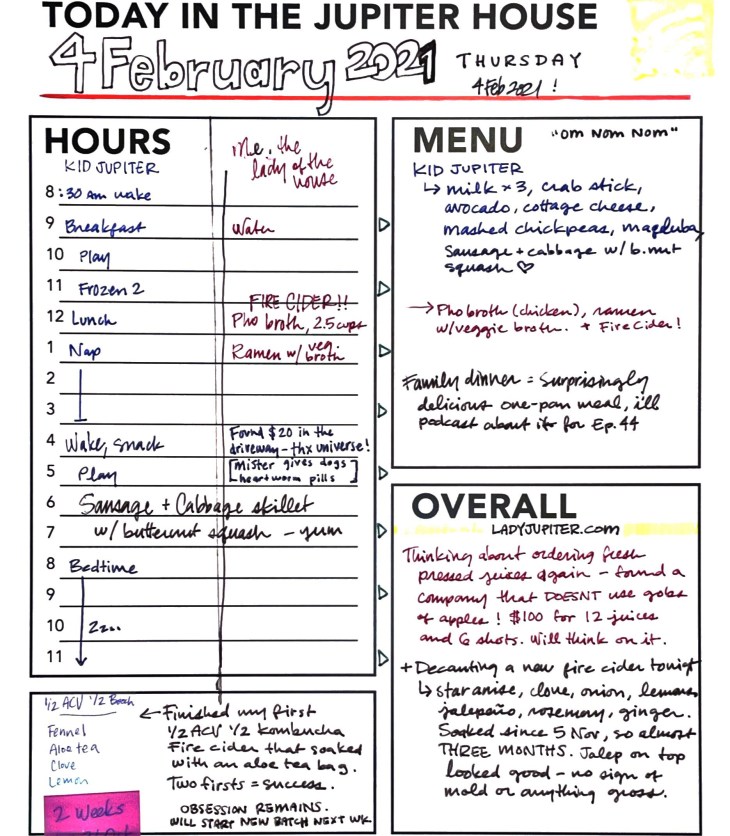 TODAY IN THE JUPITER HOUSE
4 February 2021 THURSDAY
4 Feb 2021 !
HOURS
KID JUPITER
Me, the
lady of the
house
8 :30 Am wake
9 Breakfast Water
10 Play
11 Frozen 2
FIRE CIDER!!
12 Lunch Pho broth, 2.5 cups
1 Nap Ramen w/ veg. broth
2
3
4 Wake, snack Found $20 in the
driveway - thx universe!
5 Play [Mister gives dogs
heartworm pills]
6 Sausage + Cabbage skillet
7 w/ butternut squash - yum
8 Bedtime
9
10 Zz...
11
MENU "Om Nom Nom"
KID JUPITER
↳ milk x 3, crab stick,
avocado, cottage cheese,
mashed chickpeas, magduba,
Sausage + cabbage w/ b.nut
squash ♡
→ Pho broth (chicken), ramen
w/veggie broth. + Fire Cider!
Family dinner = Surprisingly
delicious one-pan meal, ill
podcast about it for Ep. 44
OVERALL
LADYJUPITER.com
Thinking about ordering fresh
pressed juices again - found a
company that DOESNT use gobs
of apples! $100 for 12 juices
and 6 shots. Will think on it.
+ Decanting a new fire cider tonigt
↳ star anise, clove, onion, lemons
jalepeño, rosemary, ginger.
Soaked since 5 Nov, so almost
THREE MONTHS. Jalep on top
looked good - no sign of
mold or anything gross.
1/2 ACV 1/2 Booch
Fennel
Aloe tea
Clove
Lemon
2 Weeks
← Finished my first
1/2 ACV 1/2 Kombucha
Fire cider that soaked
with an aloe tea bag.
Two firsts = success.
OBSESSION REMAINS.
WILL START NEW BATCH NEXT WK